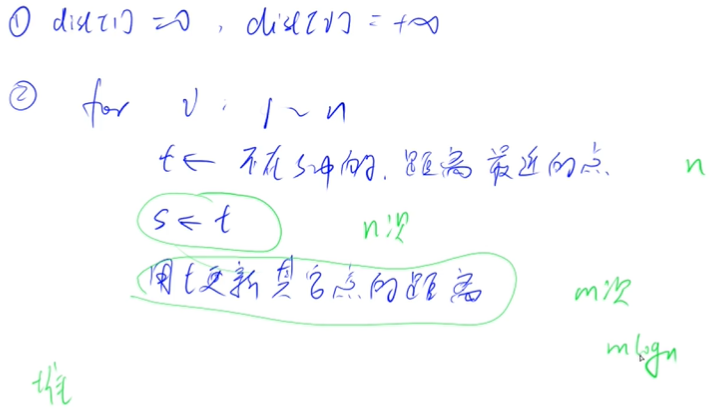 ① dist[1] = 0, dist[v] = +∞
② for v: 1 ~ n
t ← 不在s中的, 距离最近的点. n
s ← t n次
用t更新其它点的距离 m次
mlogn
堆